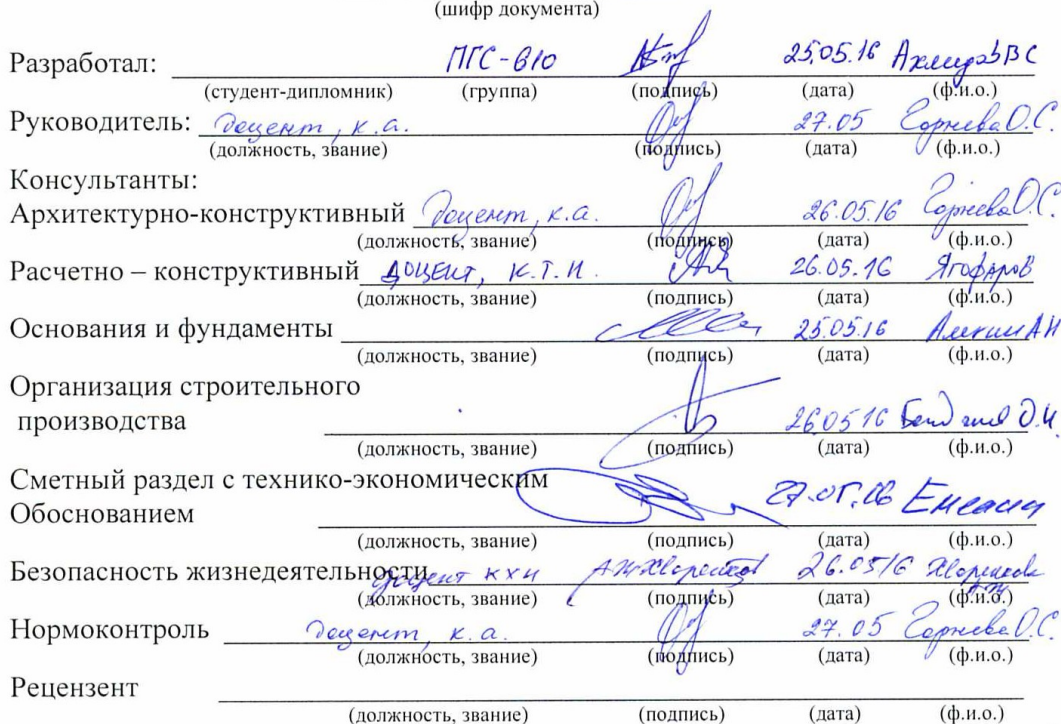 (шифр документа)
Разработал: ПГС-610 25.05.16
(студент-дипломник) (группа) (подпись) (дата) (ф.и.о.)
Руководитель: доцент, к.а. 27.05 Горнева О.С.
(должность, звание) (подпись) (дата) (ф.и.о.)
Консультанты:
Архитектурно-конструктивный доцент, к.а. 26.05.16 Горнева О.С.
(должность, звание) (подпись) (дата) (ф.и.о.)
Расчетно – конструктивный доцент, к.т.н. 26.05.16 Ягофаров
(должность, звание) (подпись) (дата) (ф.и.о.)
Основания и фундаменты 25.05.16
(должность, звание) (подпись) (дата) (ф.и.о.)
Организация строительного
производства 26.05 16
(должность, звание) (подпись) (дата) (ф.и.о.)
Сметный раздел с технико-экономическим
Обоснованием
(должность, звание) (подпись) (дата) (ф.и.о.)
Безопасность жизнедеятельности доцент кхн 26.05 16
(должность, звание) (подпись) (дата) (ф.и.о.)
Нормоконтроль доцент, к.а. 27.05 Горнева О.С.
(должность, звание) (подпись) (дата) (ф.и.о.)
Рецензент
(должность, звание) (подпись) (дата) (ф.и.о.)